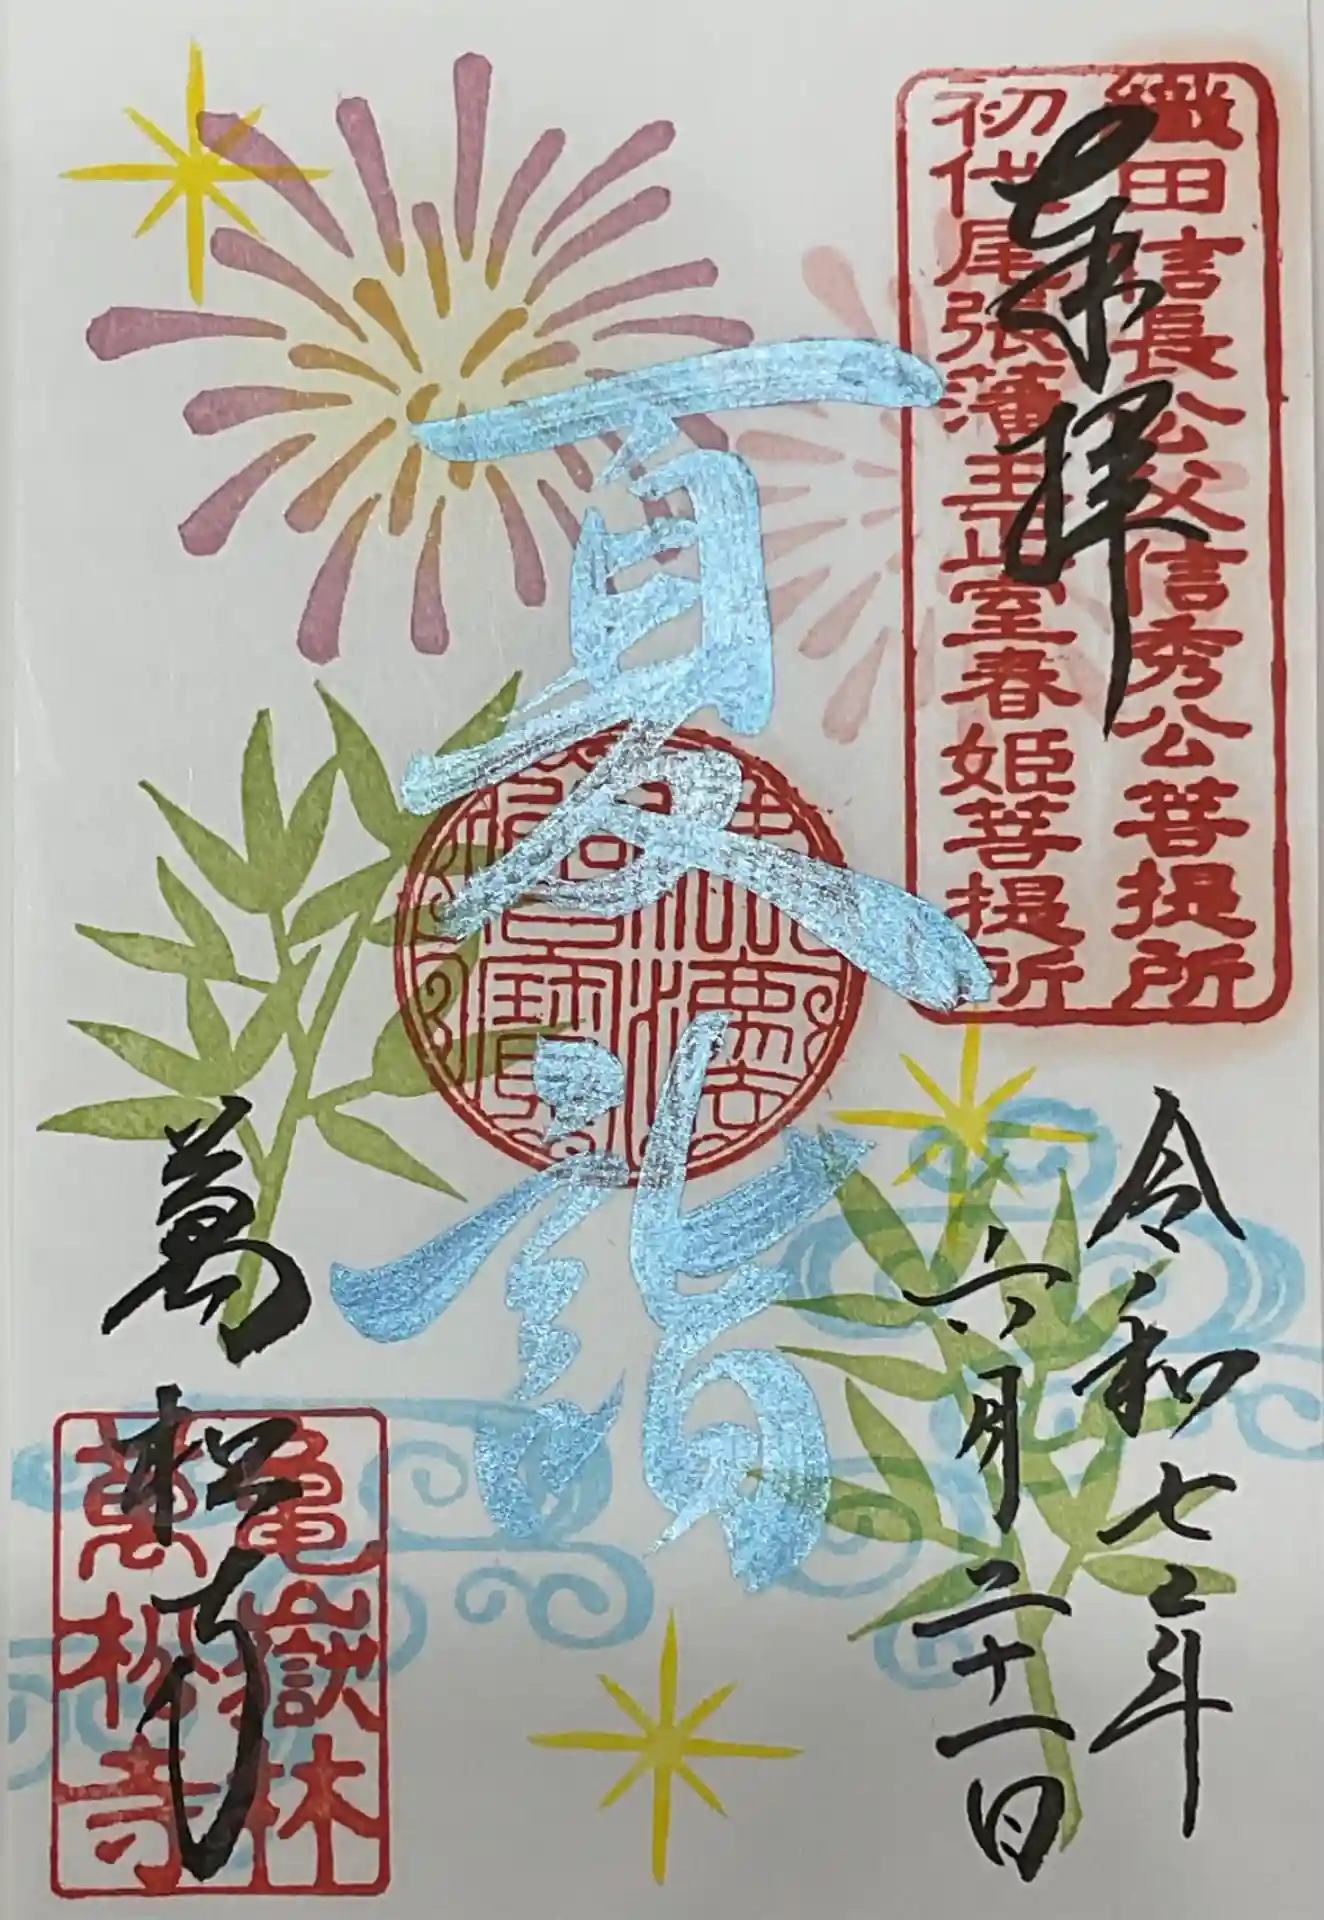 織田信長公父信秀公菩提所
初代尾張藩主正室春姫菩提所
奉拝
夏詣
佛法僧寳
令和七年
六月二十一日
萬松寺
亀嶽林
萬松寺